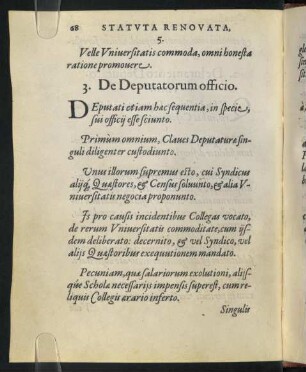 68 STATVTA RENOVATA,
5.
Velle Vniuersitatis commoda, omni honesta
ratione promouere.
3. De Deputatorum officio.
DEputati etiam hæc sequentia, in specie,
sui officij esse sciunto.
Primùm omnium, Claues Deputaturæ sin-
guli diligenter custodiunto.
Vnus illorum supremus esto, cui Syndicus
alijq́; Quæstores, & Census soluunto, & alia V-
niuersitatis negocia proponunto.
Is pro causis incidentibus Collegas vocato,
de rerum Vniuersitatis commoditate, cum ijs-
dem deliberato: decernito, & vel Syndico, vel
alijs Quæstoribus exequutionem mandato.
Pecuniam, quæ salariorum exolutioni, alijs-
que Scholæ necessarijs impensis superest, cum re-
liquis Collegis ærario inferto.
Singulis